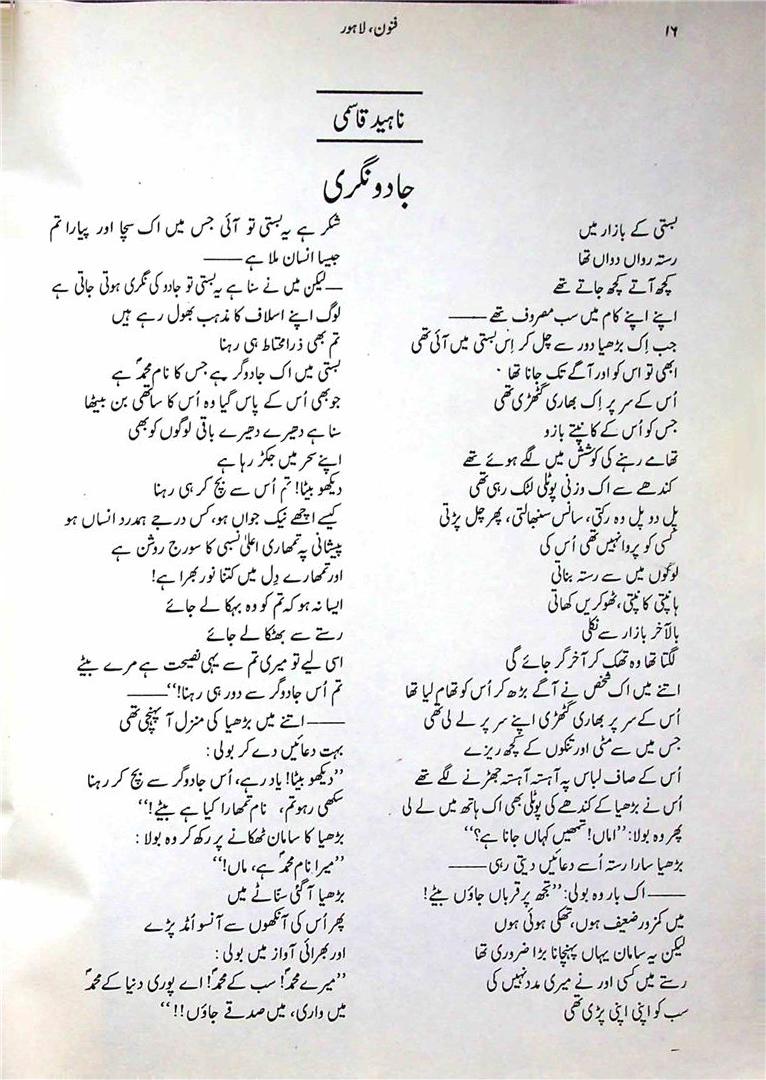 ۱۶
فنون، لاہور
ناہید قاسمی
جادو نگری
بستی کے بازار میں
رستہ رواں دواں تھا
کچھ آتے کچھ جاتے تھے
اپنے اپنے کام میں سب مصروف تھے ——
جب اِک بڑھیا دور سے چل کر اِس بستی میں آئی تھی
ابھی تو اس کو اور آگے تک جانا تھا
اُس کے سر پر اِک بھاری گٹھڑی تھی
جس کو اُس کے کانپتے بازو
تھامے رہنے کی کوشش میں لگے ہوئے تھے
کندھے سے اک وزنی پوٹلی لٹک رہی تھی
پل دو پل وہ رکتی، سانس سنبھالتی، پھر چل پڑتی
کسی کو پروا نہیں تھی اُس کی
لوگوں میں سے رستہ بناتی
ہانپتی کانپتی، ٹھوکریں کھاتی
بالآخر بازار سے نکلی
لگتا تھا وہ تھک کر آخر گر جائے گی
اتنے میں اک شخص نے آگے بڑھ کر اُس کو تھام لیا تھا
اُس کے سر پر بھاری گٹھڑی اپنے سر پر لے لی تھی
جس میں سے مٹی اور تنکوں کے کچھ ریزے
اُس کے صاف لباس پہ آہستہ آہستہ جھڑنے لگے تھے
اُس نے بڑھیا کے کندھے کی پوٹلی بھی اک ہاتھ میں لے لی
پھر وہ بولا: ”اماں! تمھیں کہاں جانا ہے؟“
بڑھیا سارا رستہ اُسے دعائیں دیتی رہی ——
—— اک بار وہ بولی: ”تجھ پر قرباں جاؤں بیٹے!
میں کمزور ضعیف ہوں، تھکی ہوئی ہوں
لیکن یہ سامان یہاں پہنچانا بڑا ضروری تھا
رستے میں کسی اور نے میری مدد نہیں کی
سب کو اپنی اپنی پڑی تھی
شکر ہے یہ بستی تو آئی جس میں اک سچا اور پیارا تم
جیسا انسان ملا ہے ——
—لیکن میں نے سنا ہے یہ بستی تو جادو کی نگری ہوتی جاتی ہے
لوگ اپنے اسلاف کا مذہب بھول رہے ہیں
تم بھی ذرا محتاط ہی رہنا
بستی میں اک جادوگر ہے جس کا نام محمدؐ ہے
جو بھی اُس کے پاس گیا وہ اُس کا ساتھی بن بیٹھا
سنا ہے دھیرے دھیرے باقی لوگوں کو بھی
اپنے سحر میں جکڑ رہا ہے
دیکھو بیٹا! تم اُس سے بچ کر ہی رہنا
کیسے اچھے نیک جواں ہو، کس درجے ہمدرد انساں ہو
پیشانی پہ تمھاری اعلیٰ نسبی کا سورج روشن ہے
اور تمھارے دِل میں کتنا نور بھرا ہے!
ایسا نہ ہو کہ تم کو وہ بہکا لے جائے
رستے سے بھٹکا لے جائے
اسی لیے تو میری تم سے یہی نصیحت ہے مرے بیٹے
تم اُس جادوگر سے دور ہی رہنا!“ ——
—— اتنے میں بڑھیا کی منزل آ پہنچی تھی
بہت دعائیں دے کر بولی:
”دیکھو بیٹا! یاد رہے، اُس جادوگر سے بچ کر رہنا
سکھی رہو تم، نام تمھارا کیا ہے بیٹے!“
بڑھیا کا سامان ٹھکانے پر رکھ کر وہ بولا:
”میرا نام محمدؐ ہے، ماں!“
بڑھیا آ گئی سنّاٹے میں
پھر اُس کی آنکھوں سے آنسو اُمڈ پڑے
اور بھرائی آواز میں بولی:
”میرے محمدؐ! سب کے محمدؐ! اے پوری دنیا کے محمدؐ
میں واری، میں صدقے جاؤں!!“